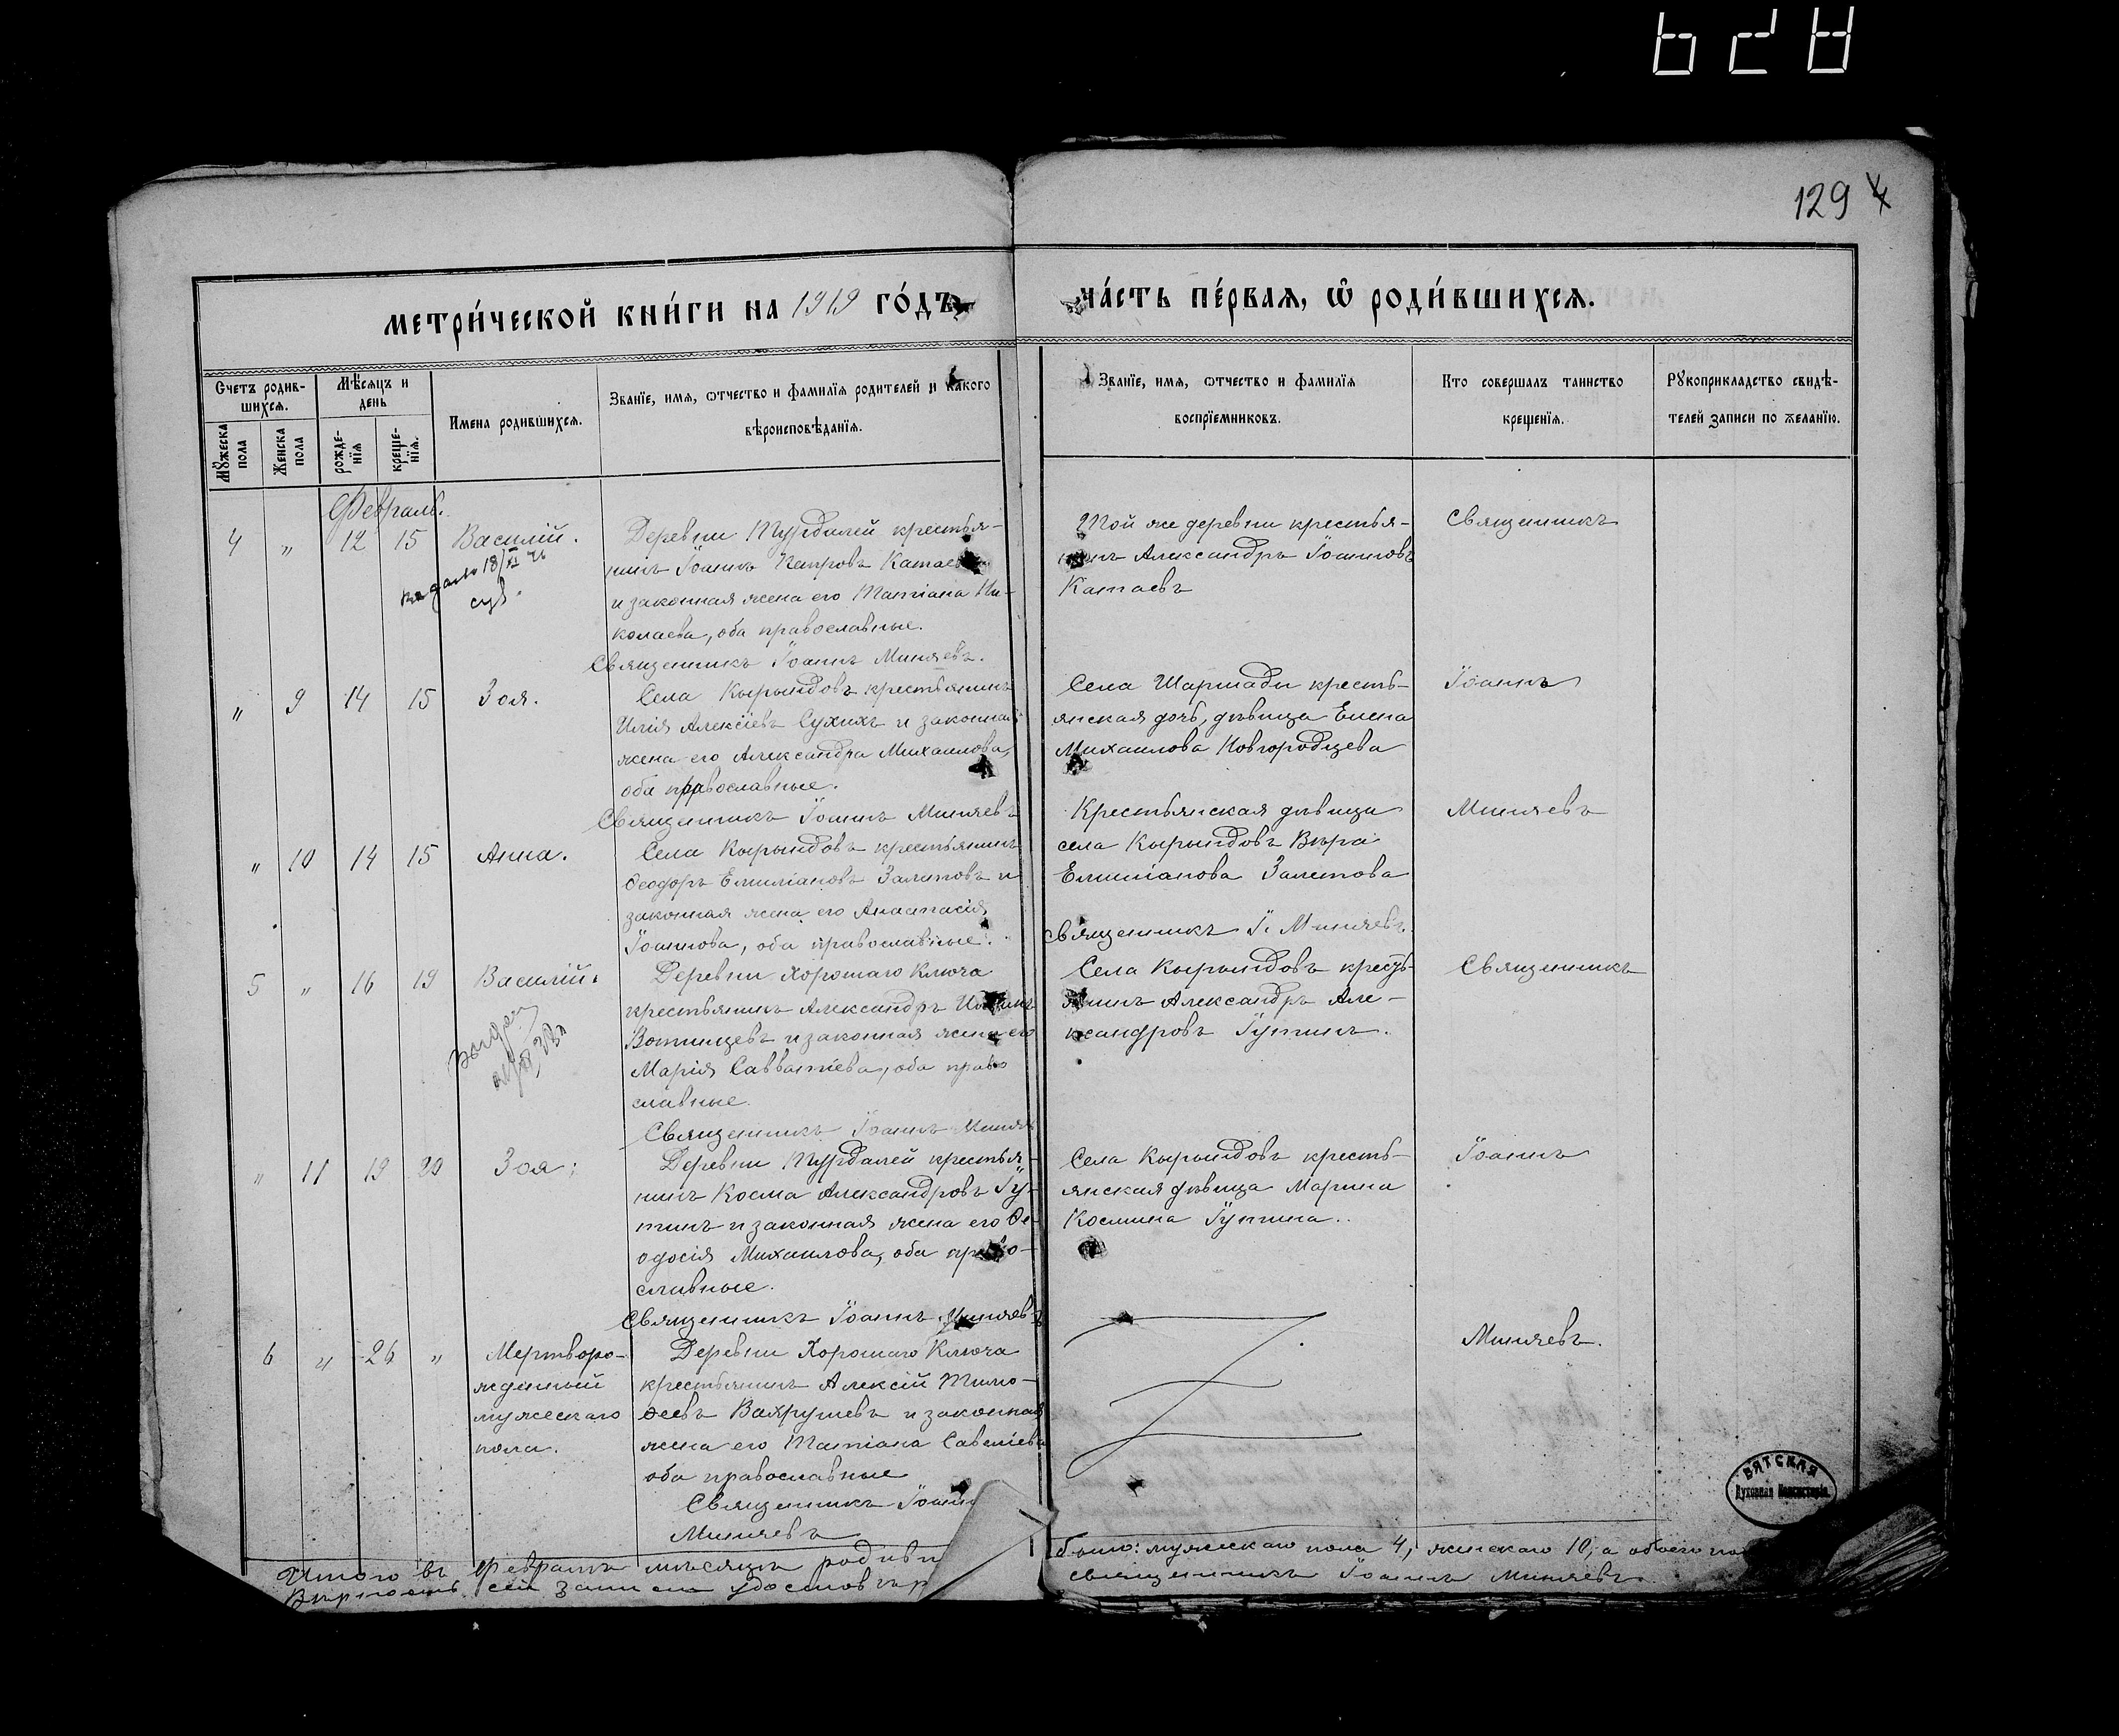 129
метри́ческой кни́ги на 1919 го́дъ
ча́сть пе́рвая, ѿ роди́вшихся.
Счетъ родив-
шихся.
Мѣсяцъ и
день
Мужеска
пола
Женска
пола
рожде-
нїя
креще-
нїя.
Имена родившихся.
Званїе, имя, отчество и фамилїя родителей и какого
вѣроисповѣданїя.
Званїе, имя, отчество и фамилїя
воспрїемниковъ.
Кто совершалъ таинство
крещенїя.
Рукоприкладство свидѣ-
телей записи по желанїю.
Февраль.
4 " 12 15 Василій.
Деревни Турдалей крестья-
нинъ Іоаннъ Петровъ Катаевъ
и законная жена его Татіана Ни-
колаева, оба православные.
Священникъ Іоаннъ Миняевъ.
Той же деревни крестья-
нинъ Александръ Іоанновъ
Катаевъ
Священникъ
" 9 14 15 Зоя.
Села Кырындовъ крестьянинъ
Илія Алексіевъ Сухихъ и законная
жена его Александра Михаилова,
оба православные.
Священникъ Іоаннъ Миняевъ
Села Шаршади кресть-
янская дочь, дѣвица Елена
Михаилова Новгородцева
Іоаннъ
" 10 14 15 Анна.
Села Кырындовъ крестьянинъ
Ѳеодоръ Емиліановъ Залетовъ и
законная жена его Анастасія
Іоаннова, оба православные.
Крестьянская дѣвица
села Кырындовъ Вѣра
Емиліанова Залетова
Священникъ І. Миняевъ.
Миняевъ
5 " 16 19 Василій.
Деревни Хорошаго Ключа
крестьянинъ Александръ
Вотинцевъ и законная жена его
Марія Савватіева, оба право
славные.
Священникъ Іоаннъ Миняевъ
Села Кырындовъ кресть-
янинъ Александръ Але-
ксандровъ Гутинъ.
Священникъ
" 11 19 20 Зоя.
Деревни Турдалей крестья-
нинъ Косма Александровъ Гу-
тинъ и законная жена его Ѳе-
одосія Михаилова, оба право-
славные.
Священникъ Іоаннъ Миняевъ
Села Кырындовъ кресть-
янская дѣвица Марина
Космина Гутина.
Іоаннъ
6 " 26 " Мертворо-
жденный
мужескаго
пола.
Деревни Хорошаго Ключа
крестьянинъ Алексій Тимо-
ѳеевъ Вахрушевъ и законная
жена его Татіана Савеліева
оба православные
Священникъ Іоаннъ
Миняевъ
Миняевъ.
Итого въ Февралѣ мѣсяцѣ родивш
было: мужескаго пола 4, женскаго 10, а обоего по
Вѣрность сей записи удостовѣр
священникъ Іоаннъ Миняевъ.
ВЯТСКАЯ
Духовная Консисторія